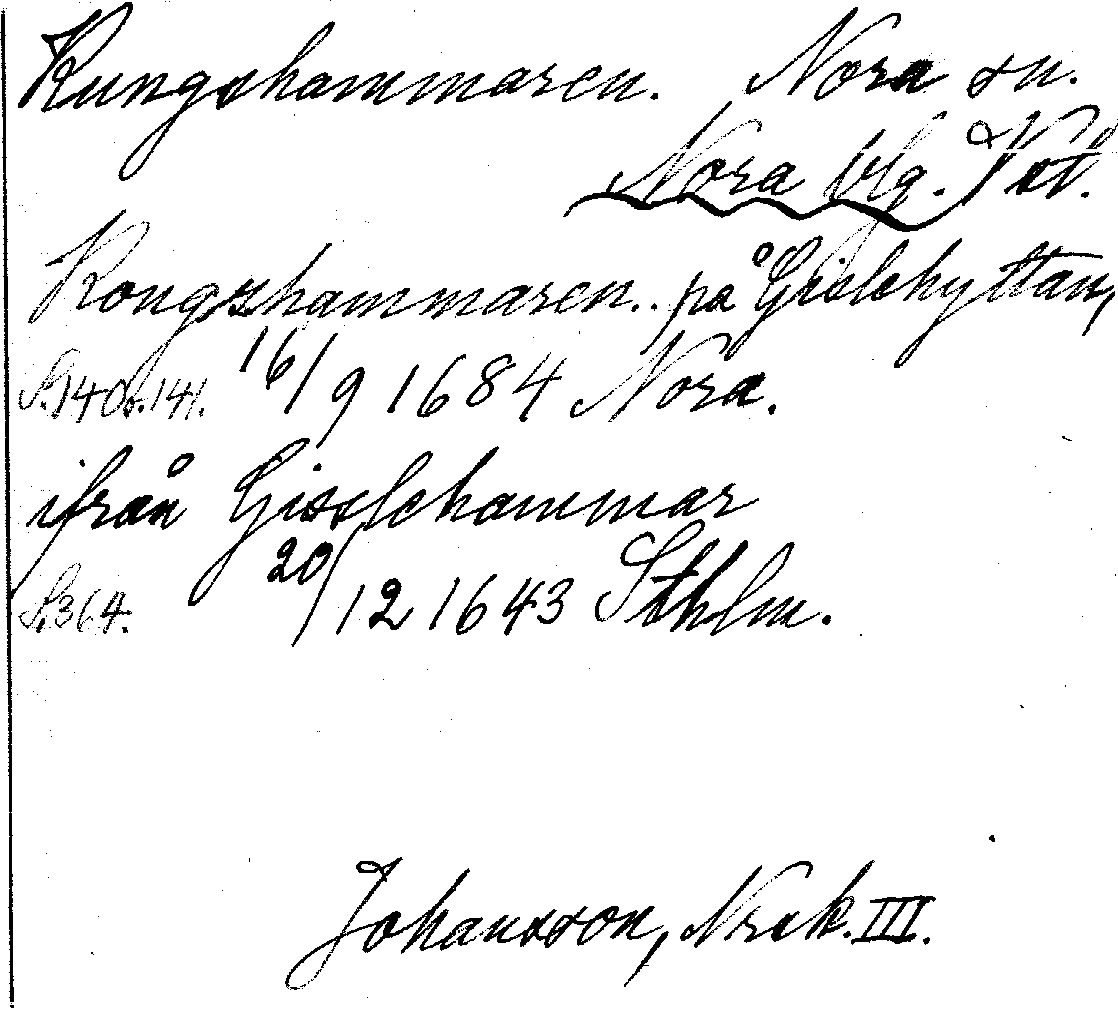 Kungshammaren. Nora sn.
Nora blg. Vstl.
Kongzhammaren.. på Gislehyttan,
S. 140 o. 141. 16/9 1684 Nora.
ifrån Gisslehammar
S. 364. 20/12 1643 Sthlm.
Johansson, Nrek. III.